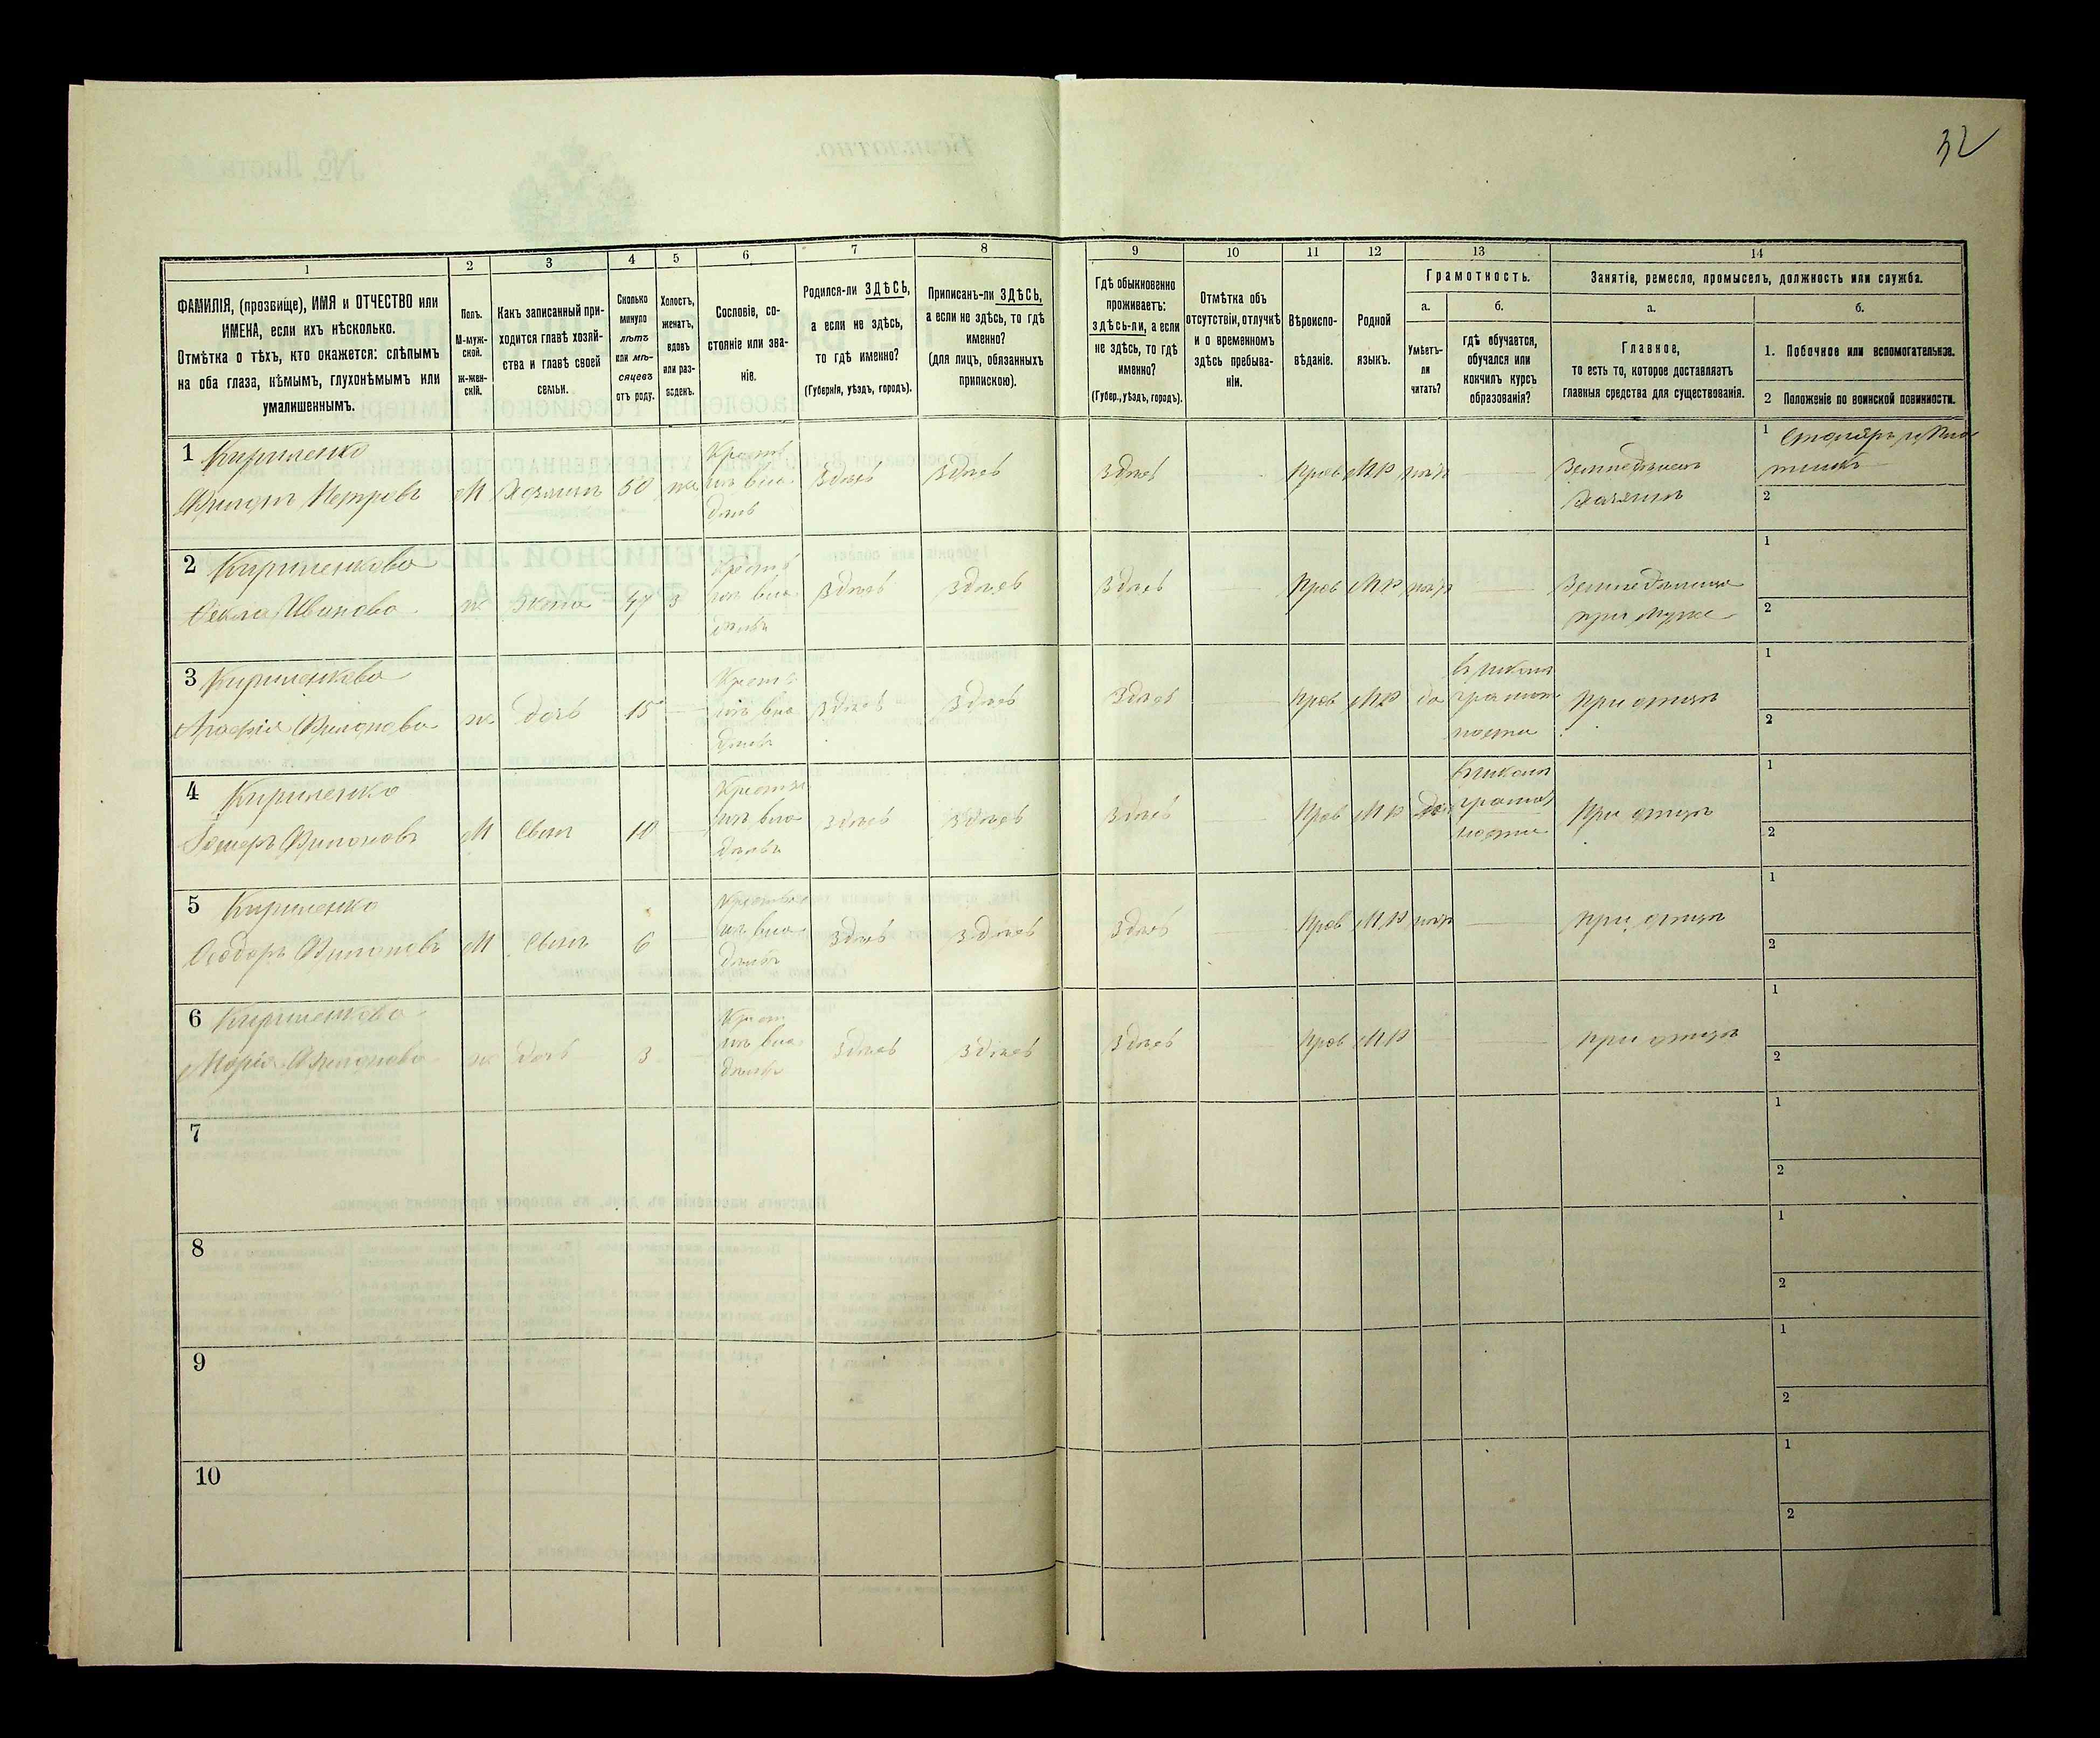 32
1
2
3
4
5
6
7
8
9
10
11
12
13
14
ФАМИЛІЯ, (прозвище), ИМЯ и ОТЧЕСТВО или
ИМЕНА, если ихъ нѣсколько.
Отмѣтка о тѣхъ, кто окажется: слѣпымъ
на оба глаза, нѣмымъ, глухонѣмымъ или
умалишеннымъ.
Полъ.
М-муж-
ской.
ж-жен-
скій.
Какъ записанный при-
ходится главѣ хозяй-
ства и главѣ своей
семьи.
Сколько
минуло
лѣтъ
или мѣ-
сяцевъ
отъ роду.
Холостъ,
женатъ,
вдовъ
или раз-
веденъ.
Сословіе, со-
стояніе или зва-
ніе.
Родился-ли ЗДѢСЬ,
а если не здѣсь,
то гдѣ именно?
(Губернія, уѣздъ, городъ).
Приписанъ-ли ЗДѢСЬ,
а если не здѣсь, то гдѣ
именно?
(для лицъ, обязанныхъ
припискою).
Гдѣ обыкновенно
проживаетъ:
здѣсь-ли, а если
не здѣсь, то гдѣ
именно?
(Губер., уѣздъ, городъ).
Отмѣтка объ
отсутствіи, отлучкѣ
и о временномъ
здѣсь пребыва-
ніи.
Вѣроиспо-
вѣданіе.
Родной
языкъ.
Грамотность.
а.
Умѣетъ-
ли
читать?
б.
гдѣ обучается,
обучался или
кончилъ курсъ
образованія?
Занятія, ремесло, промыселъ, должность или служба.
а.
Главное,
то есть то, которое доставляетъ
главныя средства для существованія.
б.
1. Побочное или вспомогательное.
2 Положеніе по воинской повинности.
1 Кириленко
Филонъ Петровъ
М
Хозяинъ
50
Здѣсь
Здѣсь
Здѣсь
Прав
М.Р
Земледѣлецъ
хозяинъ
1
2
2 Кириленкова
Ѳекла Иванова
ж
жена
47
з
Здѣсь
Здѣсь
Здѣсь
Прав
М.Р
при мужѣ
1
2
3 Кириленкова
Агафія Филонова
ж
дочь
15
Здѣсь
Здѣсь
Здѣсь
Прав
М.Р
да
при отцѣ
1
2
4 Кириленко
Филоновъ
М
Сынъ
10
Здѣсь
Здѣсь
Здѣсь
Прав
М.Р
да
При отцѣ
1
2
5 Кириленко
Ѳедоръ Филоновъ
М
Сынъ
6
Здѣсь
Здѣсь
Здѣсь
Прав
М.Р
при отцѣ
1
2
6 Кириленкова
Марія Филонова
ж
дочь
3
Здѣсь
Здѣсь
Здѣсь
Прав
М.Р
при отцѣ
1
2
7
1
2
8
1
2
9
1
2
10
1
2